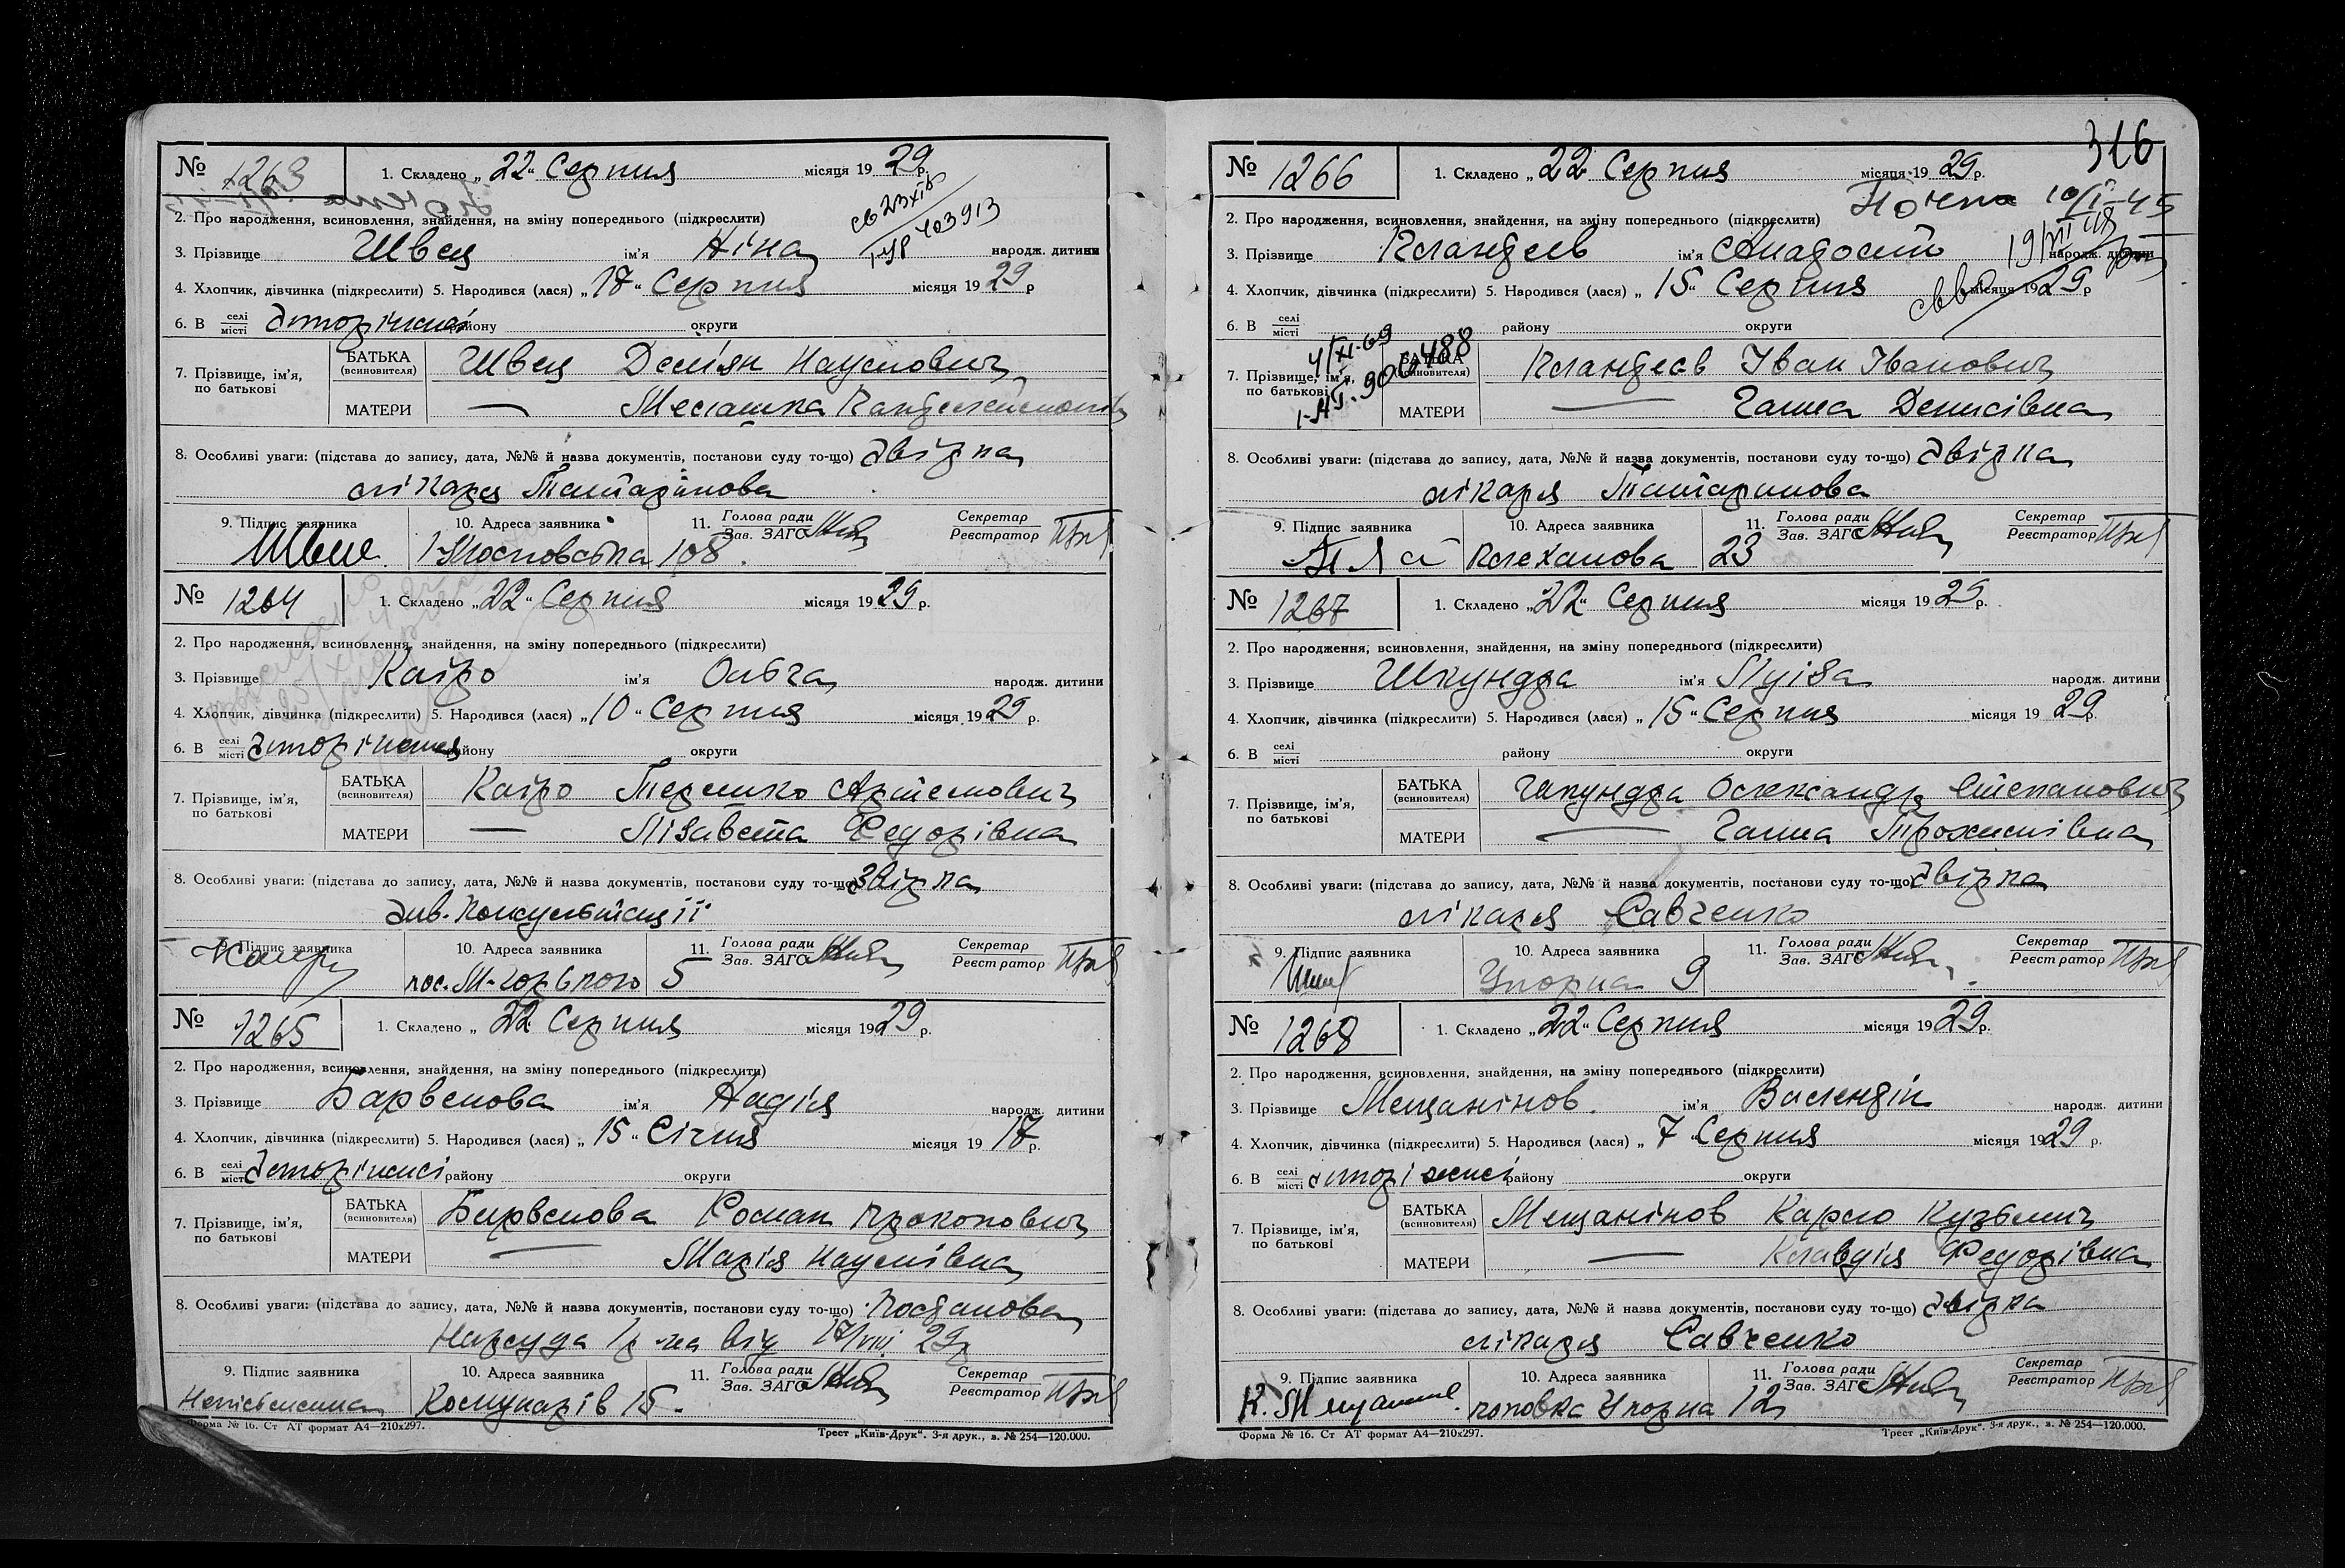 № 1263
1. Складено „22“ Серпня місяця 1929 р.
2. Про народження, всиновлення, знайдення, на зміну попереднього (підкреслити)
св 23 XI
403913
3. Прізвище Швец ім'я Ніна народж. дитини
4. Хлопчик, дівчинка (підкреслити) 5. Народився (лася) „17“ Серпня місяця 1929 р
6. В селі місті Запоріжжі району округи
7. Прізвище, ім'я, по батькові
БАТЬКА (всиновителя) Швец Деміян Наумович
МАТЕРИ — Меланка
8. Особливі уваги: (підстава до запису, дата, №№ й назва документів, постанови суду то-що) Двірка
лікаря Татарінова
9. Підпис заявника 10. Адреса заявника 11. Голова ради Зав. ЗАГС Секретар Реєстратор
Швец Московська 108.
№ 1264
1. Складено „22“ Серпня місяця 1929 р.
2. Про народження, всиновлення, знайдення, на зміну попереднього (підкреслити)
3. Прізвище Каїро ім'я Ольга народж. дитини
4. Хлопчик, дівчинка (підкреслити) 5. Народився (лася) „10“ Серпня місяця 1929 р.
6. В селі місті Запоріжжя району округи
7. Прізвище, ім'я, по батькові
БАТЬКА (всиновителя) Каїро Терешко Артемович
МАТЕРИ — Лізавета Федорівна
8. Особливі уваги: (підстава до запису, дата, №№ й назва документів, постанови суду то-що) Звірка
консультації
9. Підпис заявника 10. Адреса заявника 11. Голова ради Зав. ЗАГС Секретар Реєстратор
пос. М-Горького 5
№ 1265
1. Складено „22“ Серпня місяця 1929 р.
2. Про народження, всиновлення, знайдення, на зміну попереднього (підкреслити)
3. Прізвище Барвенова ім'я Надія народж. дитини
4. Хлопчик, дівчинка (підкреслити) 5. Народився (лася) „15“ Січня місяця 1917 р.
6. В селі місті Запоріжжі району округи
7. Прізвище, ім'я, по батькові
БАТЬКА (всиновителя) Барвенова Роман Прокопович
МАТЕРИ — Марія Наумівна
8. Особливі уваги: (підстава до запису, дата, №№ й назва документів, постанови суду то-що) Постанова
Нарсуда 17/VIII 29р
9. Підпис заявника 10. Адреса заявника 11. Голова ради Зав. ЗАГС Секретар Реєстратор
Неписьменна Комунарів 15.
Форма № 16. Ст АТ формат А4—210х297. Трест „Київ-Друк“. З-я друк., з. № 254—120.000.
316
№ 1266
1. Складено „22“ Серпня місяця 1929 р.
Почта 10/I-45
2. Про народження, всиновлення, знайдення, на зміну попереднього (підкреслити)
3. Прізвище Кландєєв ім'я Анатолій народж. дитини
4. Хлопчик, дівчинка (підкреслити) 5. Народився (лася) „15“ Серпня місяця 1929 р
6. В селі місті району округи
4/XI-69
906488
7. Прізвище, ім'я, по батькові
БАТЬКА (всиновителя) Кландєєв Іван Іванович
МАТЕРИ — Ганна Денисівна
8. Особливі уваги: (підстава до запису, дата, №№ й назва документів, постанови суду то-що) Двірка
лікаря Татаринова
9. Підпис заявника 10. Адреса заявника 11. Голова ради Зав. ЗАГС Секретар Реєстратор
Плеханова 23
№ 1267
1. Складено „22“ Серпня місяця 1929 р.
2. Про народження, всиновлення, знайдення, на зміну попереднього (підкреслити)
3. Прізвище Шкундра ім'я Луіза народж. дитини
4. Хлопчик, дівчинка (підкреслити) 5. Народився (лася) „15“ Серпня місяця 1929 р.
6. В селі місті району округи
7. Прізвище, ім'я, по батькові
БАТЬКА (всиновителя) Шкундра Олександр Степанович
МАТЕРИ — Ганна Трохимівна
8. Особливі уваги: (підстава до запису, дата, №№ й назва документів, постанови суду то-що) Двірка
лікаря Савченко
9. Підпис заявника 10. Адреса заявника 11. Голова ради Зав. ЗАГС Секретар Реєстратор
Упорна 9
№ 1268
1. Складено „22“ Серпня місяця 1929 р.
2. Про народження, всиновлення, знайдення, на зміну попереднього (підкреслити)
3. Прізвище Мещанінов ім'я Валендін народж. дитини
4. Хлопчик, дівчинка (підкреслити) 5. Народився (лася) „7“ Серпня місяця 1929 р.
6. В селі місті Запоріжжі району округи
7. Прізвище, ім'я, по батькові
БАТЬКА (всиновителя) Мещанінов Карпо Кузьмич
МАТЕРИ — Клавдія Федорівна
8. Особливі уваги: (підстава до запису, дата, №№ й назва документів, постанови суду то-що) Двірка
лікаря Савченко
9. Підпис заявника 10. Адреса заявника 11. Голова ради Зав. ЗАГС Секретар Реєстратор
К. Мещанинов Упорна 12
Форма № 16. Ст АТ формат А4—210х297. Трест „Київ-Друк“. З-я друк., з. № 254—120.000.